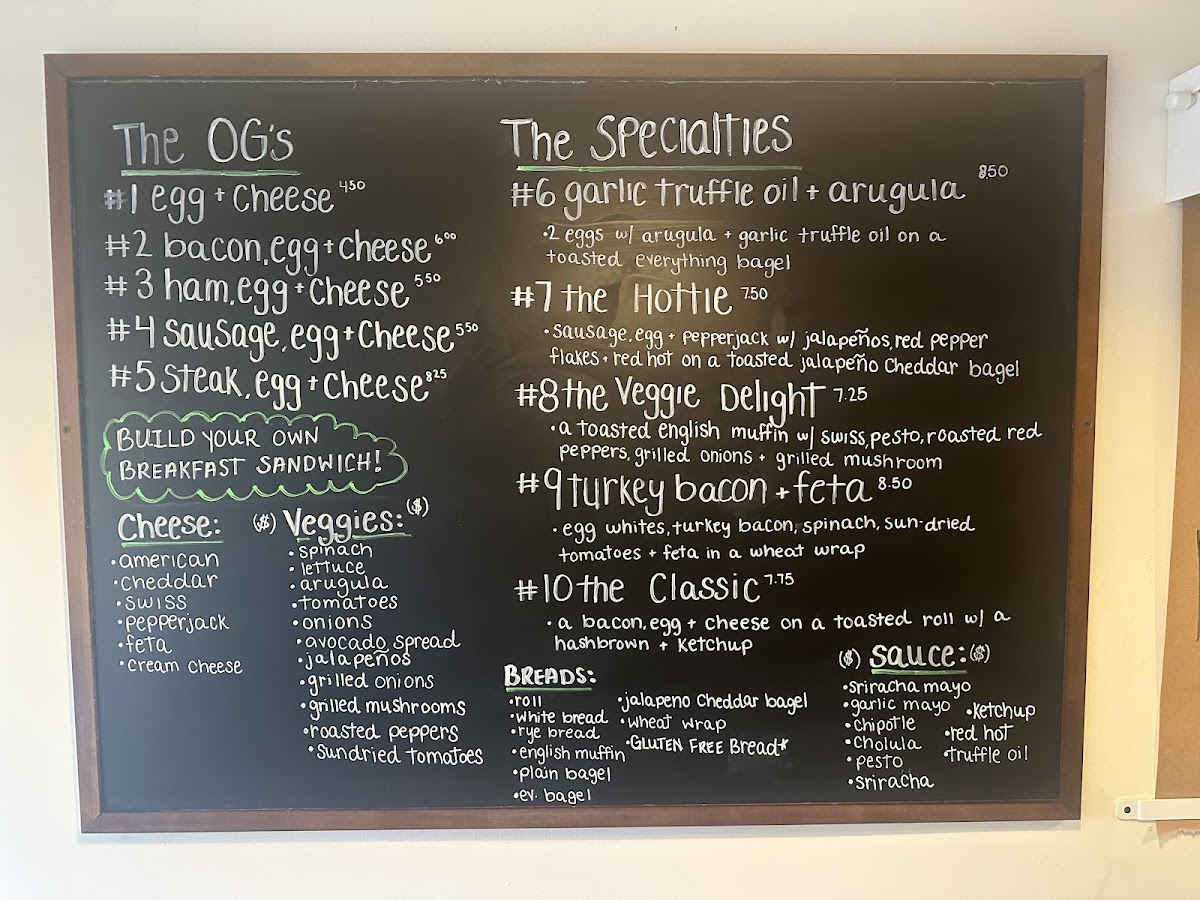 The OG's
#1 egg + cheese 4.50
#2 bacon, egg + cheese 6.00
#3 ham, egg + cheese 5.50
#4 sausage, egg + cheese 5.50
#5 steak, egg + cheese 8.25
BUILD YOUR OWN
BREAKFAST SANDWICH!
Cheese:
• american
• cheddar
• swiss
• pepperjack
• feta
• cream cheese
($) Veggies: ($)
• spinach
• lettuce
• arugula
• tomatoes
• onions
• avocado spread
• jalapeños
• grilled onions
• grilled mushrooms
• roasted peppers
• sundried tomatoes
The Specialties
#6 garlic truffle oil + arugula 8.50
• 2 eggs w/ arugula + garlic truffle oil on a
toasted everything bagel
#7 the Hottie 7.50
• sausage, egg + pepperjack w/ jalapeños, red pepper
flakes + red hot on a toasted jalapeño cheddar bagel
#8 the Veggie Delight 7.25
• a toasted english muffin w/ swiss, pesto, roasted red
peppers, grilled onions + grilled mushroom
#9 turkey bacon + feta 8.50
• egg whites, turkey bacon, spinach, sun-dried
tomatoes + feta in a wheat wrap
#10 the Classic 7.75
• a bacon, egg + cheese on a toasted roll w/ a
hashbrown + ketchup
BREADS:
• roll
• white bread
• rye bread
• english muffin
• plain bagel
• ev. bagel
• jalapeno cheddar bagel
• wheat wrap
• GLUTEN FREE Bread*
($) Sauce: ($)
• sriracha mayo
• garlic mayo
• chipotle
• cholula
• pesto
• sriracha
• ketchup
• red hot
• truffle oil